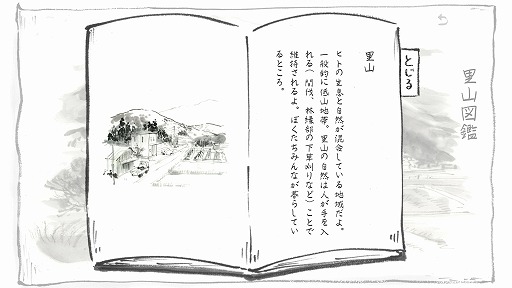 里山図鑑
とじる
里山
ヒトの生息と自然が混合している地域だよ。
一般的に低山地帯。里山の自然は人が手を入
れる(間伐、林縁部の下草刈りなど)ことで
維持されるよ。ぼくたちみんなが暮らしてい
るところ。